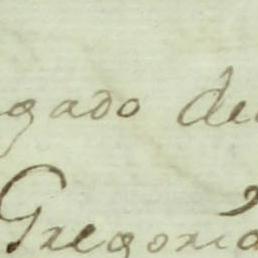 gado de
Gregorio